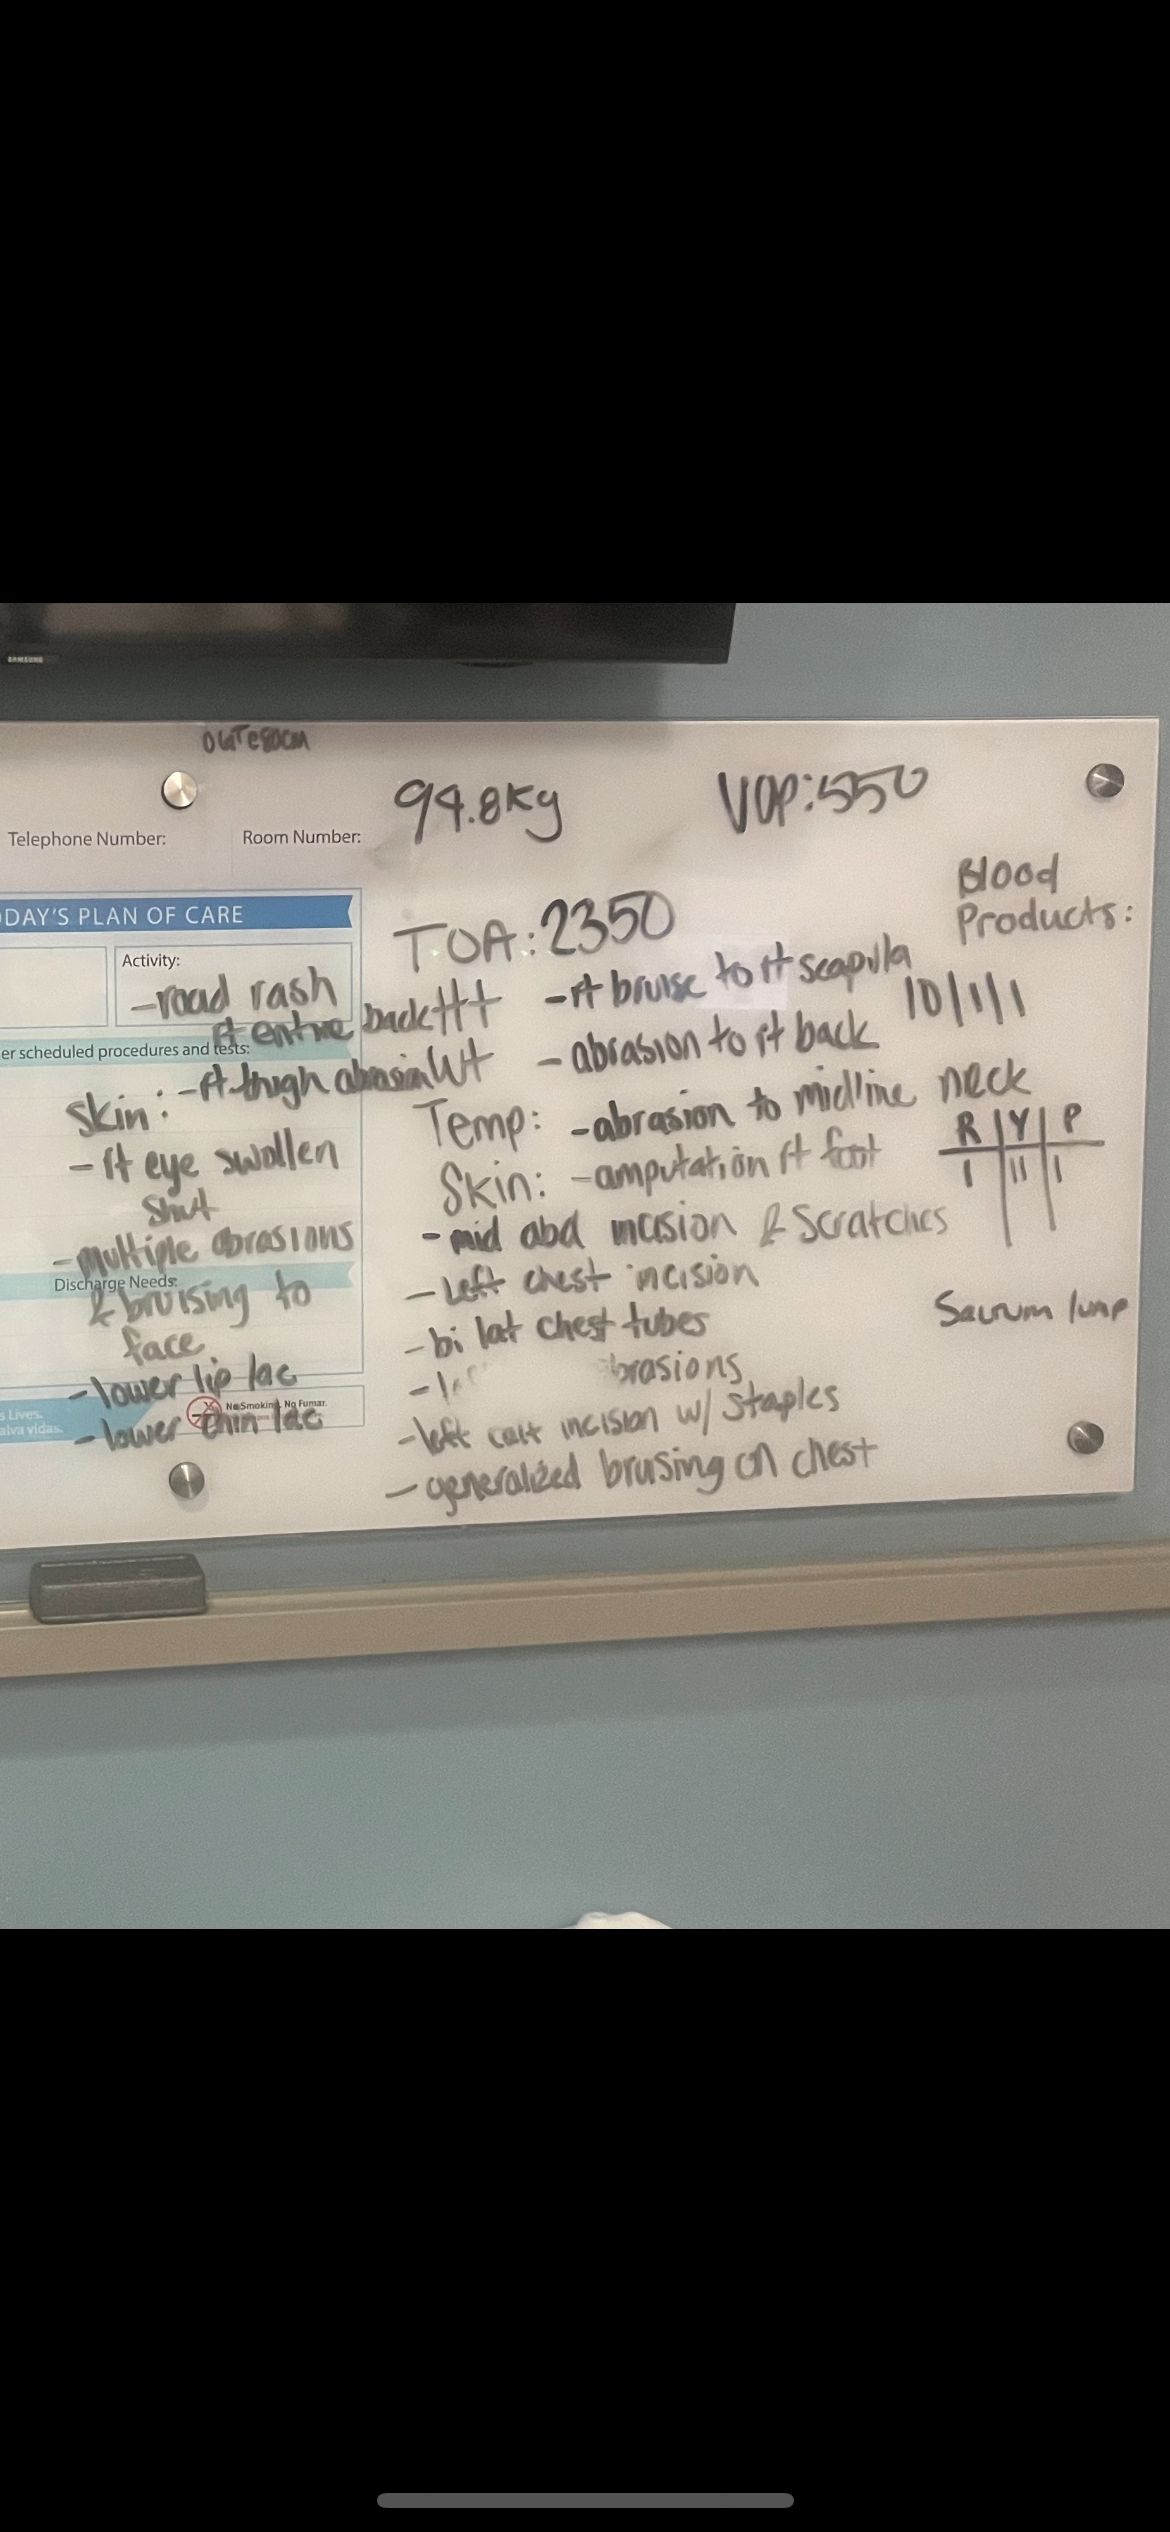 SAMSUNG
94.8Kg
UOP:550
Telephone Number:
Room Number:
Blood
Products:
DAY'S PLAN OF CARE
TOA:2350
Activity:
-road rash
rt entire back
-rt bruise to rt scapula
10/1/1
er scheduled procedures and tests:
-rt thigh abrasion
-abrasion to rt back
Skin:
Temp:
-abrasion to midline neck
R | Y | P
I | II | I
-rt eye swollen
shut
Skin:
-amputation rt foot
-mid abd incision & scratches
-multiple abrasions
Discharge Needs:
& bruising to
face
-Left chest incision
Sacrum lump
-bi lat chest tubes
brasions
-lower lip lac
No Smoking. No Fumar.
s Lives.
alva vidas.
-lower chin lac
-left calf incision w/ staples
-generalized brusing on chest